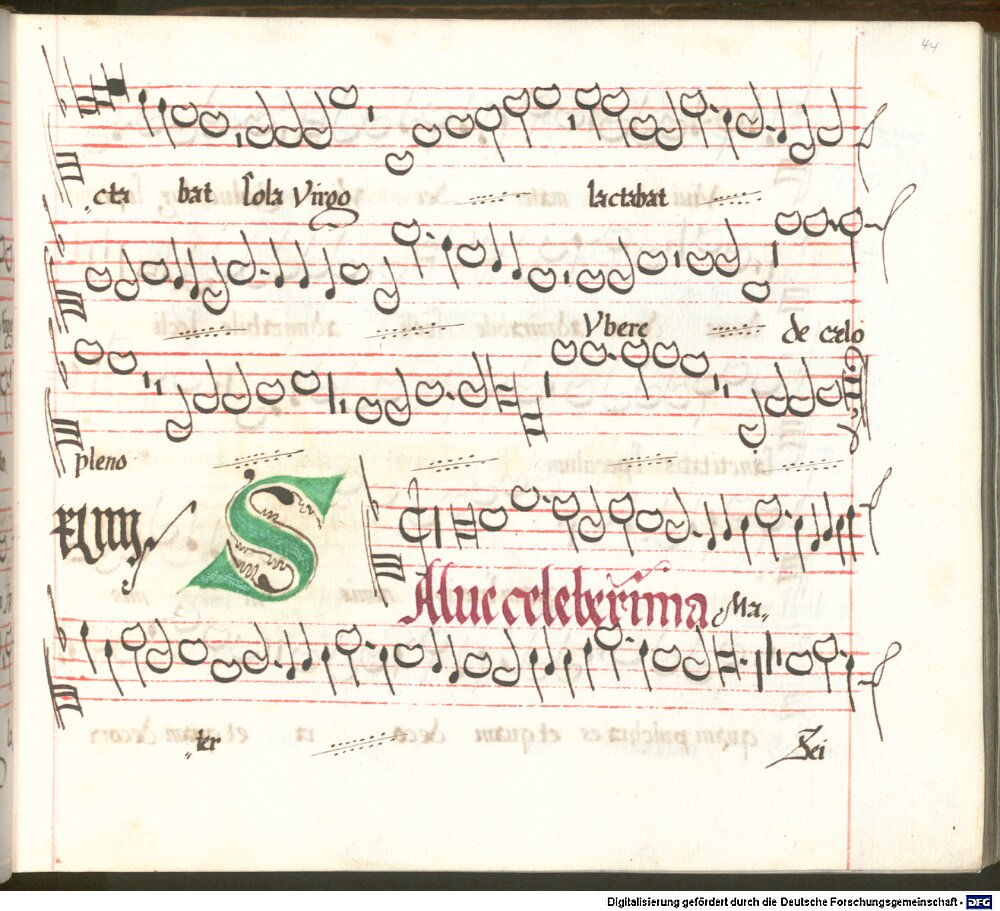 44
cta bat sola Virgo lactabat
Ybere de cælo
pleno
XLIIII
S
Alue celeberrima Ma-
ter Dei
Digitalisierung gefördert durch die Deutsche Forschungsgemeinschaft - DFG